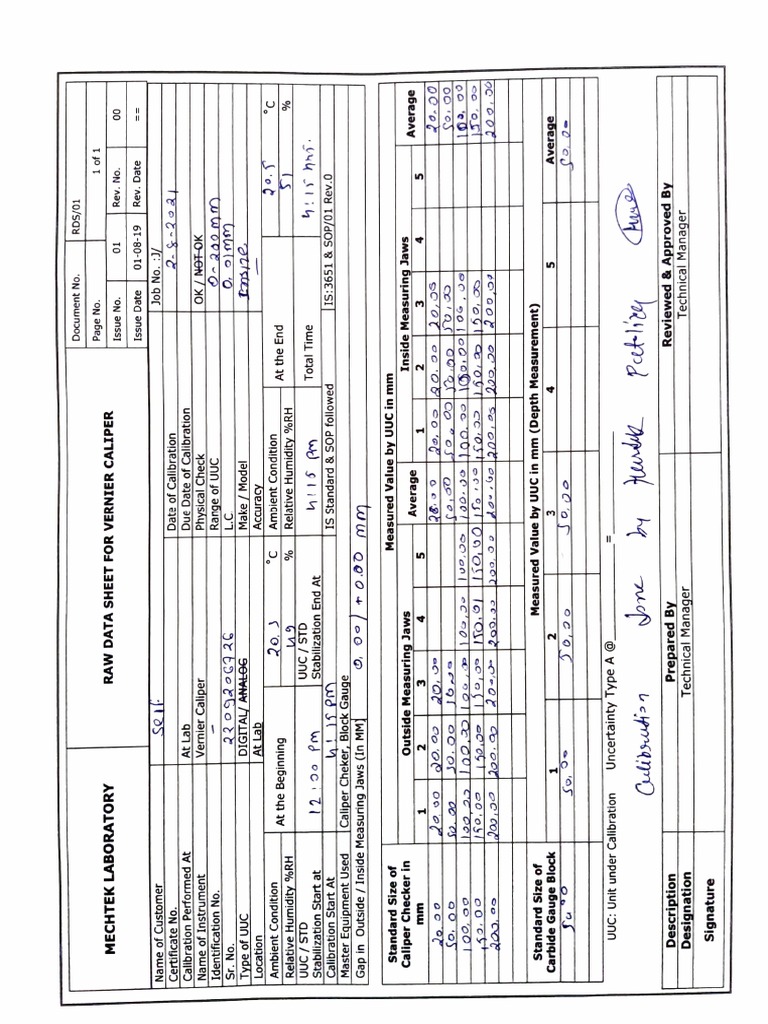 MECHTEK LABORATORY RAW DATA SHEET FOR VERNIER CALIPER
Document No. RDS/01
Page No. 1 of 1
Issue No. 01 Rev. No. 00
Issue Date 01-08-19 Rev. Date ==
Name of Customer Self Job No. :J/
Certificate No. Date of Calibration 2-8-2021
Calibration Performed At At Lab Due Date of Calibration
Name of Instrument Vernier Caliper Physical Check OK / NOT OK
Identification No. - Range of UUC 0-200mm
Sr. No. 2209206726 L.C. 0.01mm
Type of UUC DIGITAL/ ANALOG Make / Model Insize
Location At Lab Accuracy —
Ambient Condition At the Beginning 20.5 °C Ambient Condition At the End 20.5 °C
Relative Humidity %RH 49 % Relative Humidity %RH 51 %
UUC / STD Stabilization Start at 12:00 pm UUC / STD Stabilization End At 4:15 pm Total Time 4:15 hrs.
Calibration Start At 4:15 pm IS Standard & SOP followed IS:3651 & SOP/01 Rev.0
Master Equipment Used Caliper Cheker, Block Gauge
Gap in Outside / Inside Measuring Jaws (In MM) 0.00/ +0.00 mm
Standard Size of Caliper Checker in mm Measured Value by UUC in mm
Outside Measuring Jaws Inside Measuring Jaws
1 2 3 4 5 Average 1 2 3 4 5 Average
20.00 20.00 20.00 20.00 20.00 20.00 20.00 20.00 20.00
50.00 50.00 50.00 50.00 50.00 50.00 50.00 50.00 50.00
100.00 100.00 100.00 100.00 100.00 100.00 100.00 100.00 100.00 100.00 100.00
150.00 150.00 150.00 150.00 150.01 150.00 150.00 150.00 150.00 150.00 150.00
200.00 200.00 200.00 200.00 200.00 200.00 200.00 200.00 200.00 200.00 200.00
Standard Size of Carbide Gauge Block Measured Value by UUC in mm (Depth Measurement)
1 2 3 4 5 Average
50.00 50.00 50.00 50.00 50.00
UUC: Unit under Calibration Uncertainty Type A @__________=______
Calibration done by
Description Prepared By Reviewed & Approved By
Designation Technical Manager Technical Manager
Signature